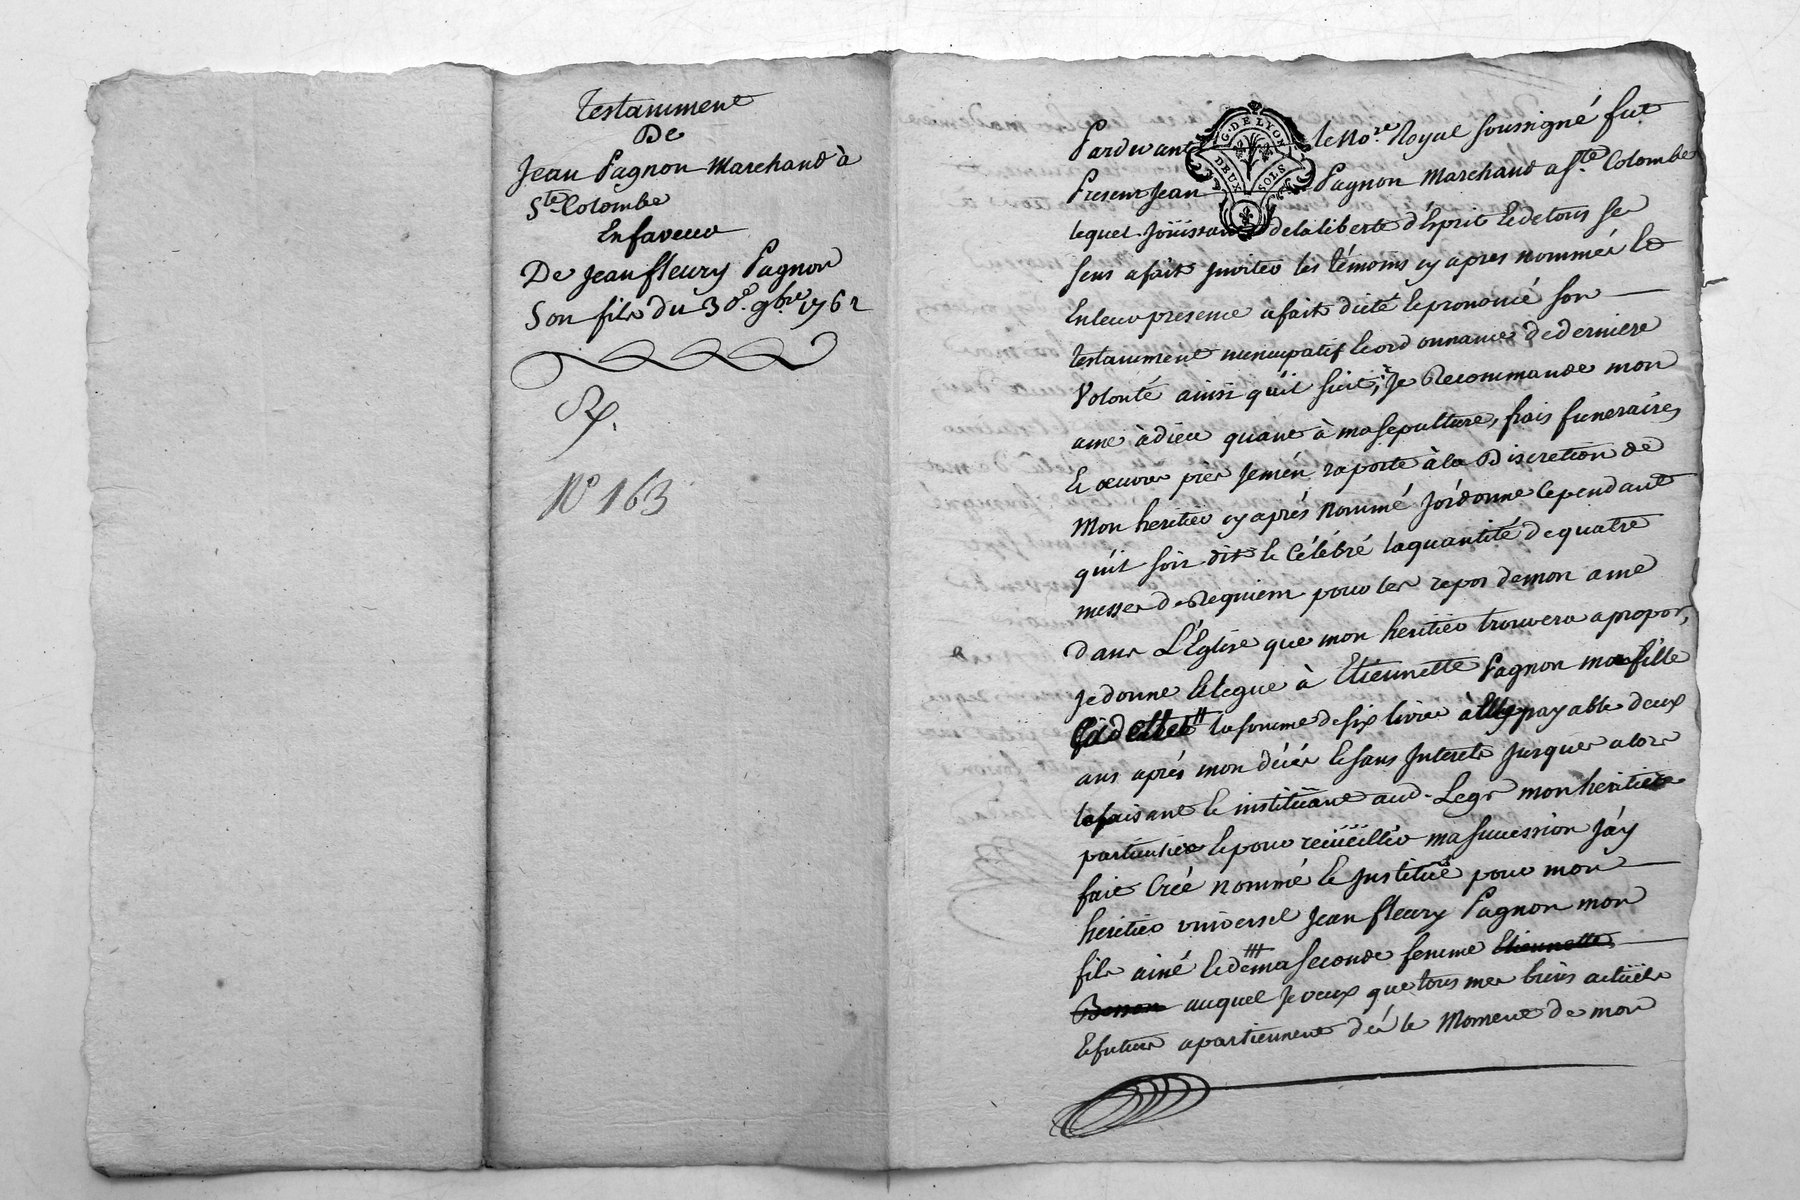 Testamment
De
Jean Pagnon Marchand à
Ste. Colombe
En faveur
De Jean fleury Pagnon
Son fils du 3 d'e. 9bre 1762
N° 163
G. DE LYON
DEUX SOLS
Pardevant le No.re Royal soussigné fut
Present Jean Pagnon Marchand a Ste. Colombe
lequel joüissant de la liberté d'Esprit & de tous se
sens a fait Inviter les témoins cy apres nommés &
En leur presence a fait dicté & prononcé son
testamment nuncupatif & ordonnance de derniere
Volonté ainsi qu'il suit, Je Recommande mon
ame à dieu quant à ma sepulture, frais funeraires
& œuvres pies Je m'en raporte à la Discretion de
Mon heritier cy après Nommé J'ordonne Cependant
qu'il soit dit & Célébré la quantité de quatre
messes de Requiem pour les repos de mon ame
dans L'Eglise que mon heritier trouvera apropos,
Je donne & legue à Etiennette Pagnon ma fille
Cadette la somme de six livres payable deux
ans après mon décés & sans Interets Jusques alors
la faisant & instituant aud. Legs mon heritiere
particuliere & pour recüeillir ma succession J'ay
fait Créé nommé & Jnstitüé pour mon
heritier universel Jean fleury Pagnon mon
fils ainé & de ma seconde femme Etiennette
Bonon auquel Je veux que tous mes biens actüels
& futurs apartiennent dés le Moment de mon